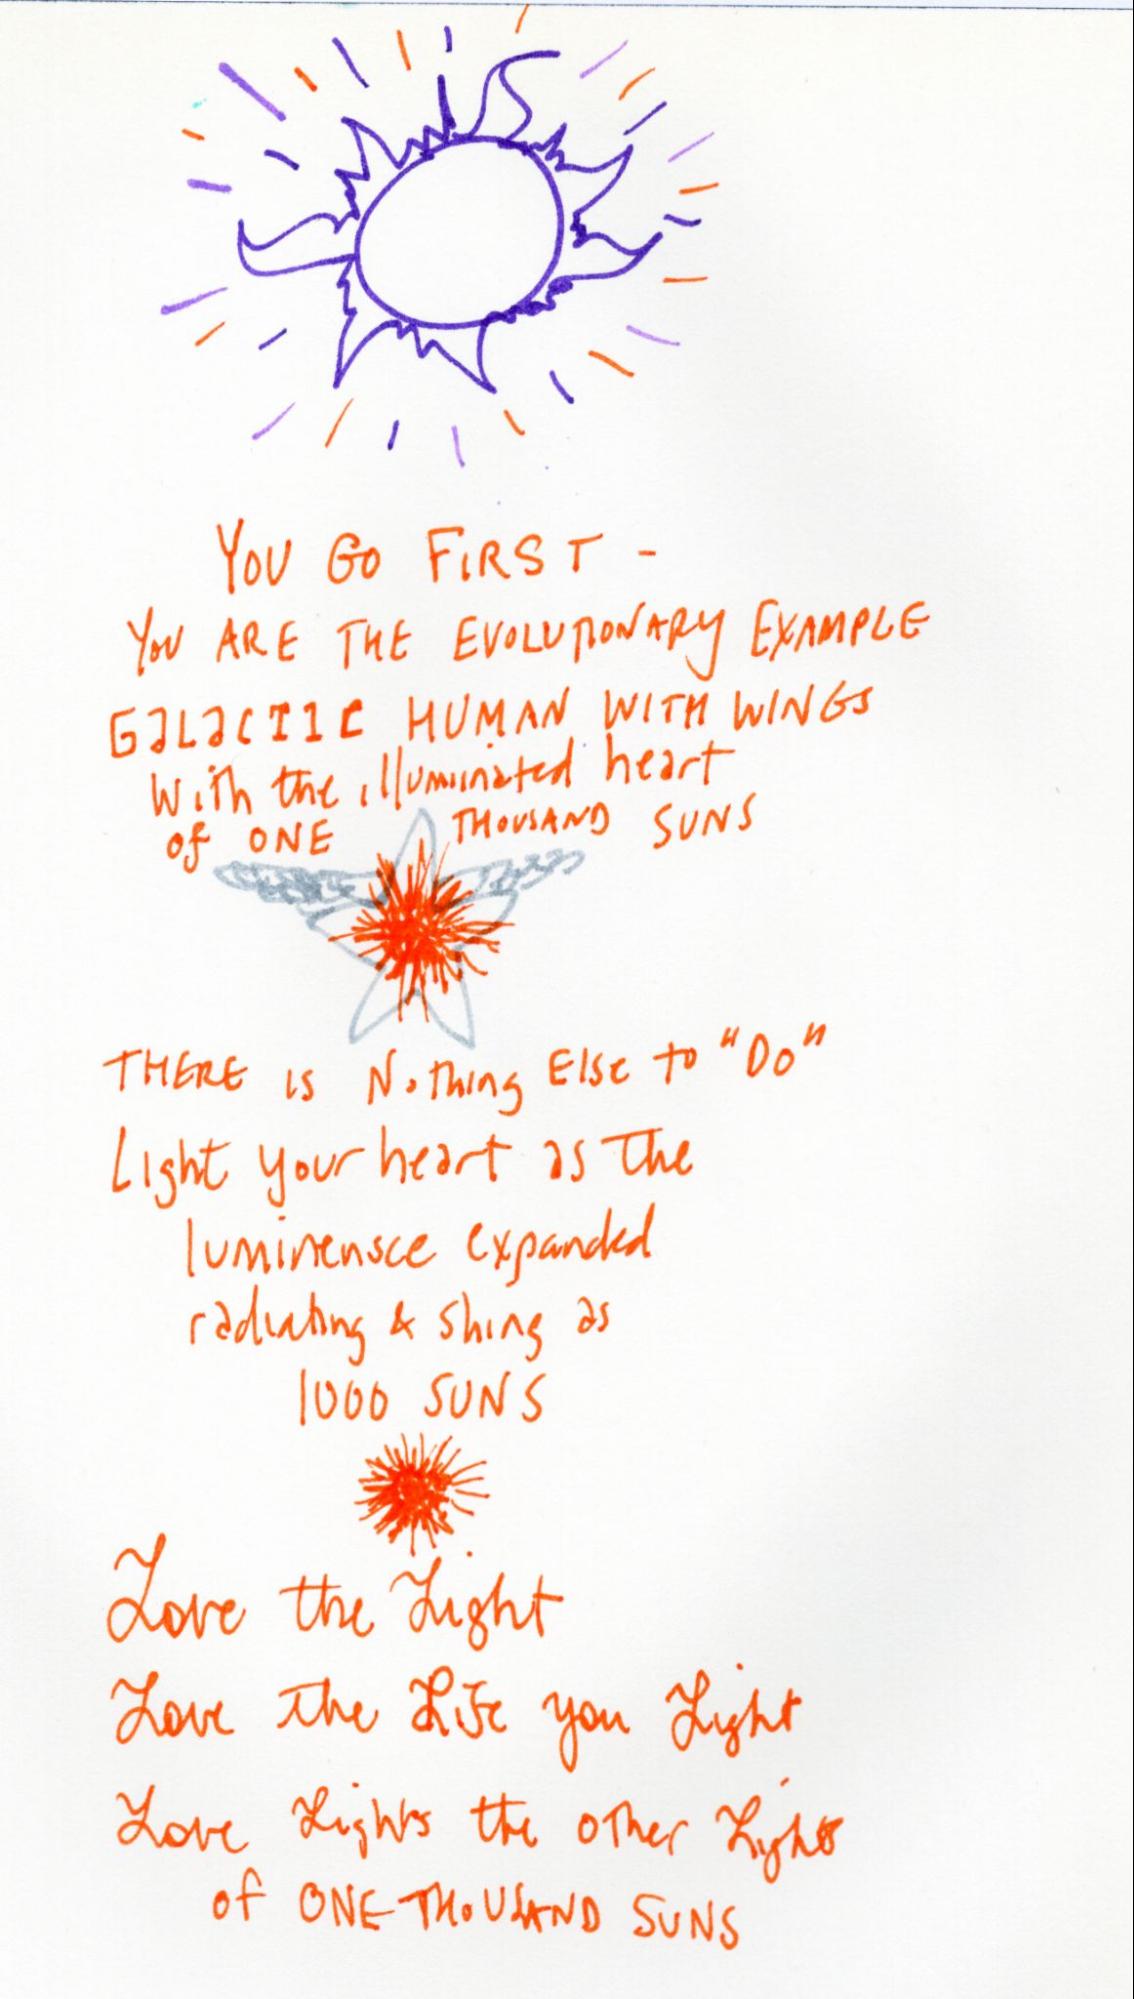 YOU GO FIRST -
YOU ARE THE EVOLUTIONARY EXAMPLE
GALACTIC HUMAN WITH WINGS
With the illuminated heart
of ONE THOUSAND SUNS
THERE is Nothing Else to "Do"
Light your heart as the
luminensce expanded
radiating & shing as
1000 SUNS
Love the Light
Love the Life you Light
Love Lights the other Lights
of ONE-THOUSAND SUNS